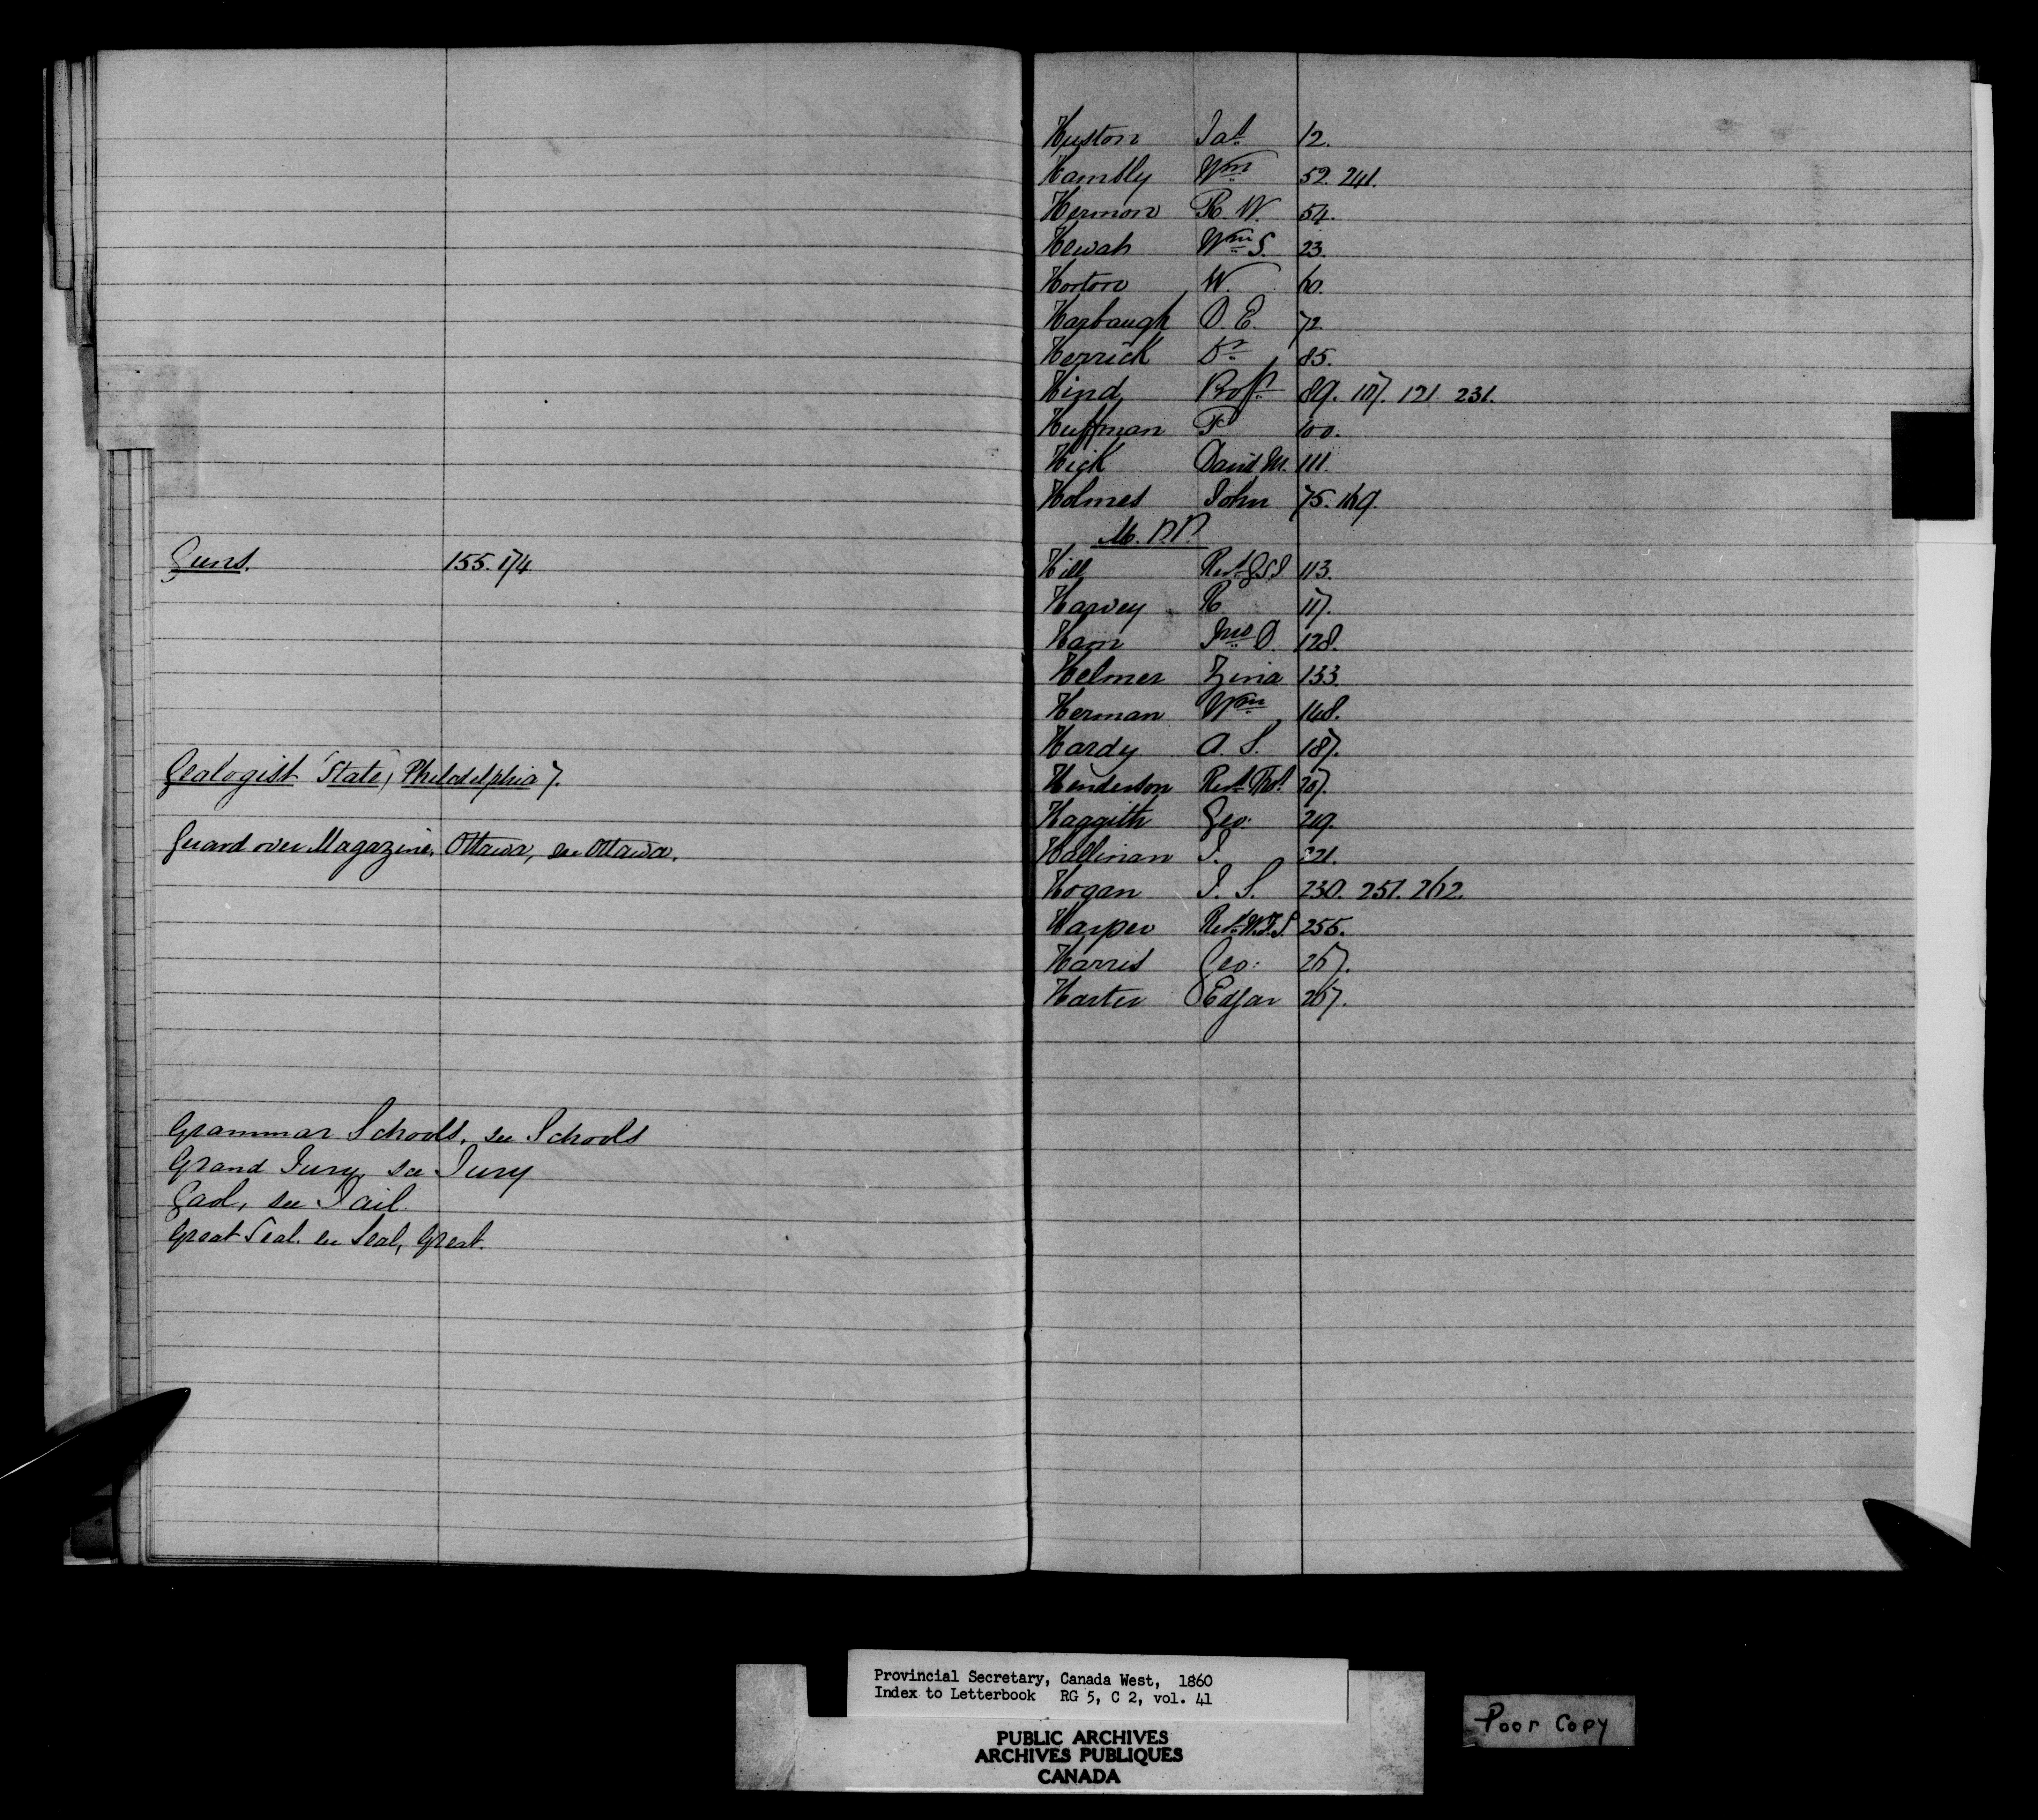 Guns. 155. 174
Geologist (State, Philadelphia 7.
Guard over Magazine, Ottawa, see Ottawa.
Grammar Schools, see Schools
Grand Jury, see Jury
Gaol, see Jail.
Great Seal. see Seal, Great.
Huston Jas 12.
Hambly Wm 52. 241.
Hermon R. W. 54.
Hewah Wm S. 23.
Horton W. 60.
Harbaugh D. E. 72.
Herrick Dr 85.
Hind Profr 89. 107. 121 231.
Huffman F 100.
Hick David M. 111.
Holmes John 75. 169.
M. P.P.
Hill Revd 113.
Harvey R 117.
Ham Jno D. 128.
Helmer Zina 133.
Herman Wm 148.
Hardy A. S. 187.
Henderson Revd Thos 207.
Haggith Geo. 219.
Hallinan J. 221.
Hogan J. S. 230. 251. 262.
Harper Revd W.F.S. 255.
Harris Geo. 267.
Harter Edgar 267.
Provincial Secretary, Canada West, 1860
Index to Letterbook RG 5, C 2, vol. 41
PUBLIC ARCHIVES
ARCHIVES PUBLIQUES
CANADA
Poor Copy